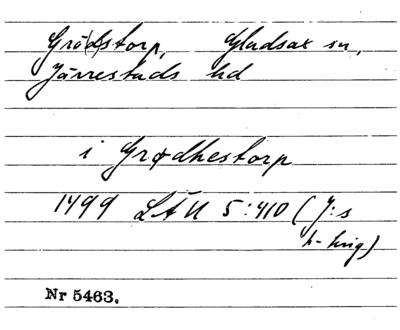 Grö(d)storp, Gladsax sn,
Järrestads hd
i Grødhestorp
1499 LÄU 5:410 (J:s
h-hrig)
Nr 5463.